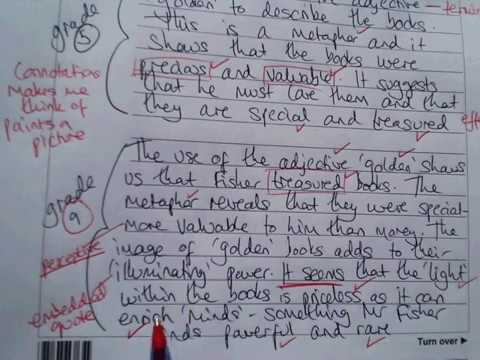 adjective - term
'golden' to describe the books.
This is a metaphor and it
shows that the books were
precious and valuable. It suggests
that he must love them and that
they are special and treasured
grade
5
Connotations
Makes me
think of
paints a
picture
The use of the adjective 'golden' shows
us that Fisher treasured books. The
metaphor reveals that they were special -
more valuable to him than money. The
image of 'golden' books adds to their
'illuminating' power. It seems that the 'light'
within the books is priceless, as it can
enrich 'minds' - something Mr Fisher
finds powerful and rare
grade
9
perceptive
embedded
quote
Turn over